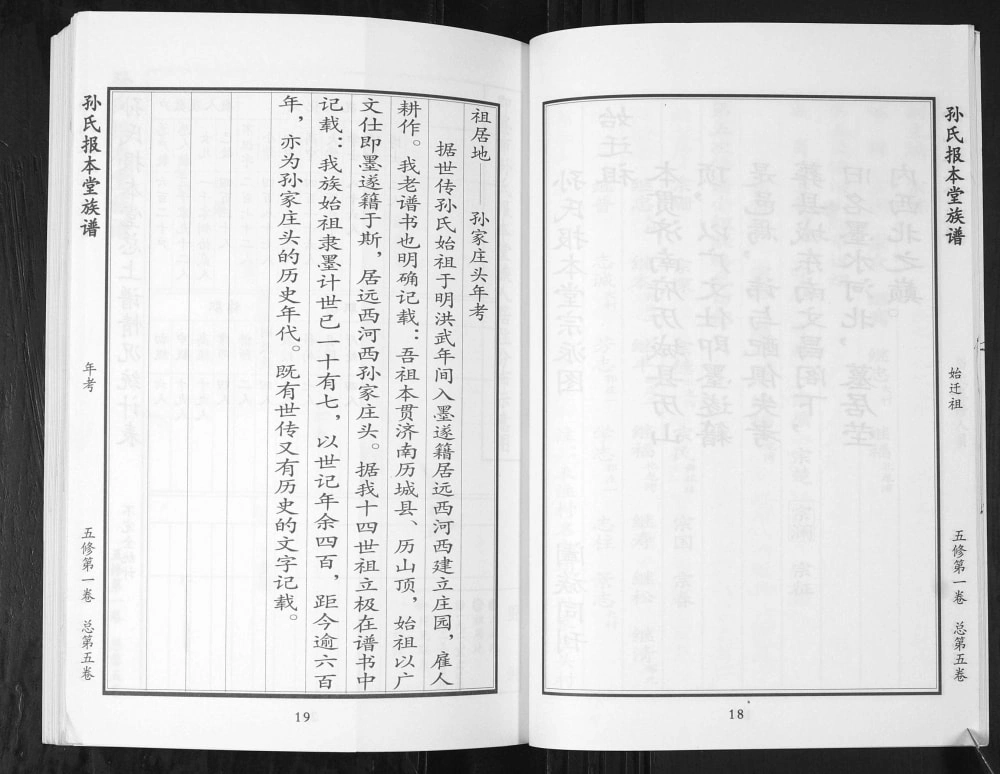 孙氏报本堂族谱
始迁祖
五修第一卷 总第五卷
18
祖居地——孙家庄头年考
据世传孙氏始祖于明洪武年间入墨遂籍居远西河西建立庄园，雇人
耕作。我老谱书也明确记载：吾祖本贯济南历城县、历山顶，始祖以广
文仕即墨遂籍于斯，居远西河西孙家庄头。据我十四世祖立极在谱书中
记载：我族始祖隶墨计世已一十有七，以世记年余四百，距今逾六百
年，亦为孙家庄头的历史年代。既有世传又有历史的文字记载。
孙氏报本堂族谱
年考
五修第一卷 总第五卷
19